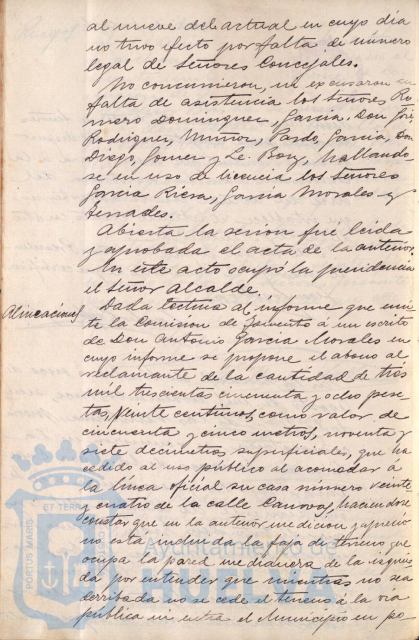 al nueve del actual en cuyo dia
no tuvo efecto por falta de número
legal de Señores Concejales.
No concurrieron, ni excusaron su
falta de asistencia los Señores Ro
mero Dominguez, Garcia, Don José,
Rodriguez, Muñoz, Pardo, Garcia, Don
Diego, Gomez y Le Bory, hallando
se en uso de licencia los Señores
Garcia Riesa, Garcia Morales y
Senades.
Abierta la sesion fué leida
y aprobada el acta de la anterior.
En este acto ocupó la presidencia
el Señor Alcalde.
Alineaciones
Dada lectura al informe que emi
te la Comision de Fomento á un escrito
de Don Antonio Garcia Morales en
cuyo informe se propone el abono al
reclamante de la cantidad de tres
mil trescientas cincuenta y ocho pese
tas, veinte centimos, como valor de
cincuenta y cinco metros, noventa y
siete decimetros superficiales, que ha
cedido al uso público al acomodar á
la linea oficial su casa número veinte
y cuatro de la calle Canovas, haciendose
constar que en la anterior medicion y aprecio
no esta incluida la faja de terreno que
ocupa la pared medianera de la izquier
da por entender que mientras no sea
derribada no se cede el terreno á la via
pública ni entra el Municipio en po
PORTUS MARIS ET TERRA
Ayuntamiento de